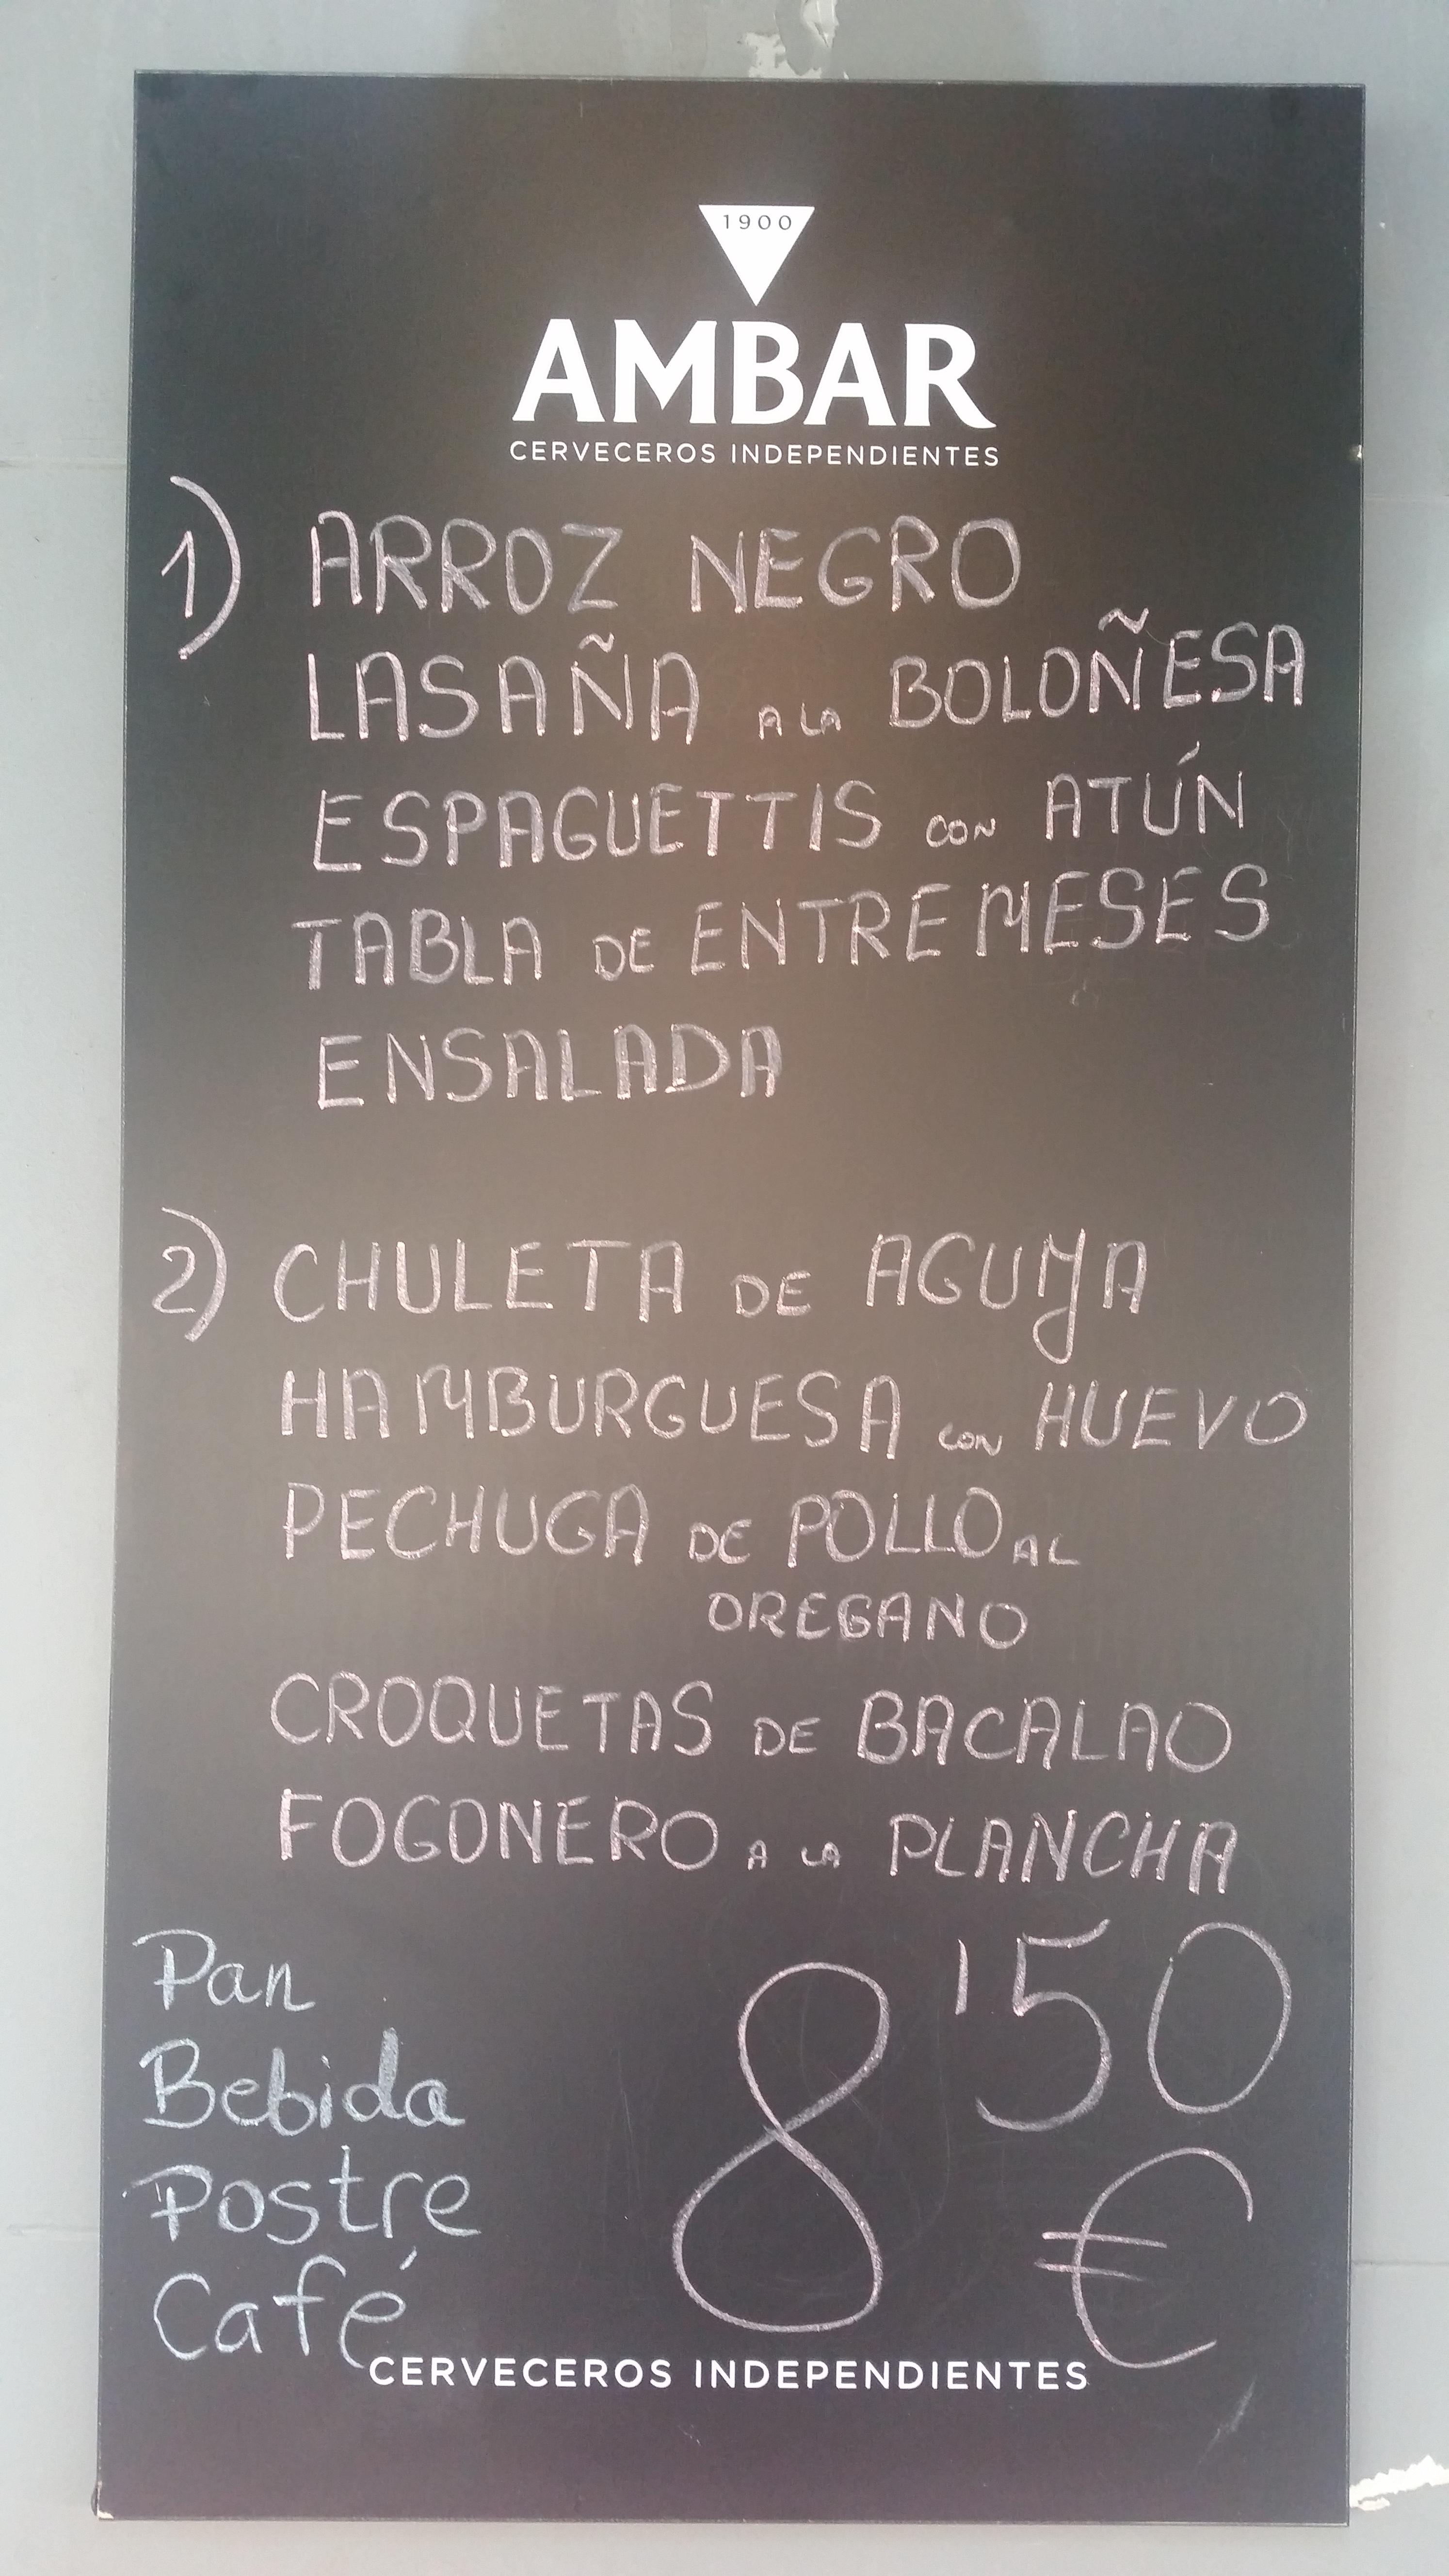 1900
AMBAR
CERVECEROS INDEPENDIENTES
1) ARROZ NEGRO
LASAÑA A LA BOLOÑESA
ESPAGUETTIS CON ATÚN
TABLA DE ENTREMESES
ENSALADA
2) CHULETA DE AGUJA
HAMBURGUESA CON HUEVO
PECHUGA DE POLLO AL
OREGANO
CROQUETAS DE BACALAO
FOGONERO A LA PLANCHA
Pan
Bebida
Postre
Café
8'50
€
CERVECEROS INDEPENDIENTES